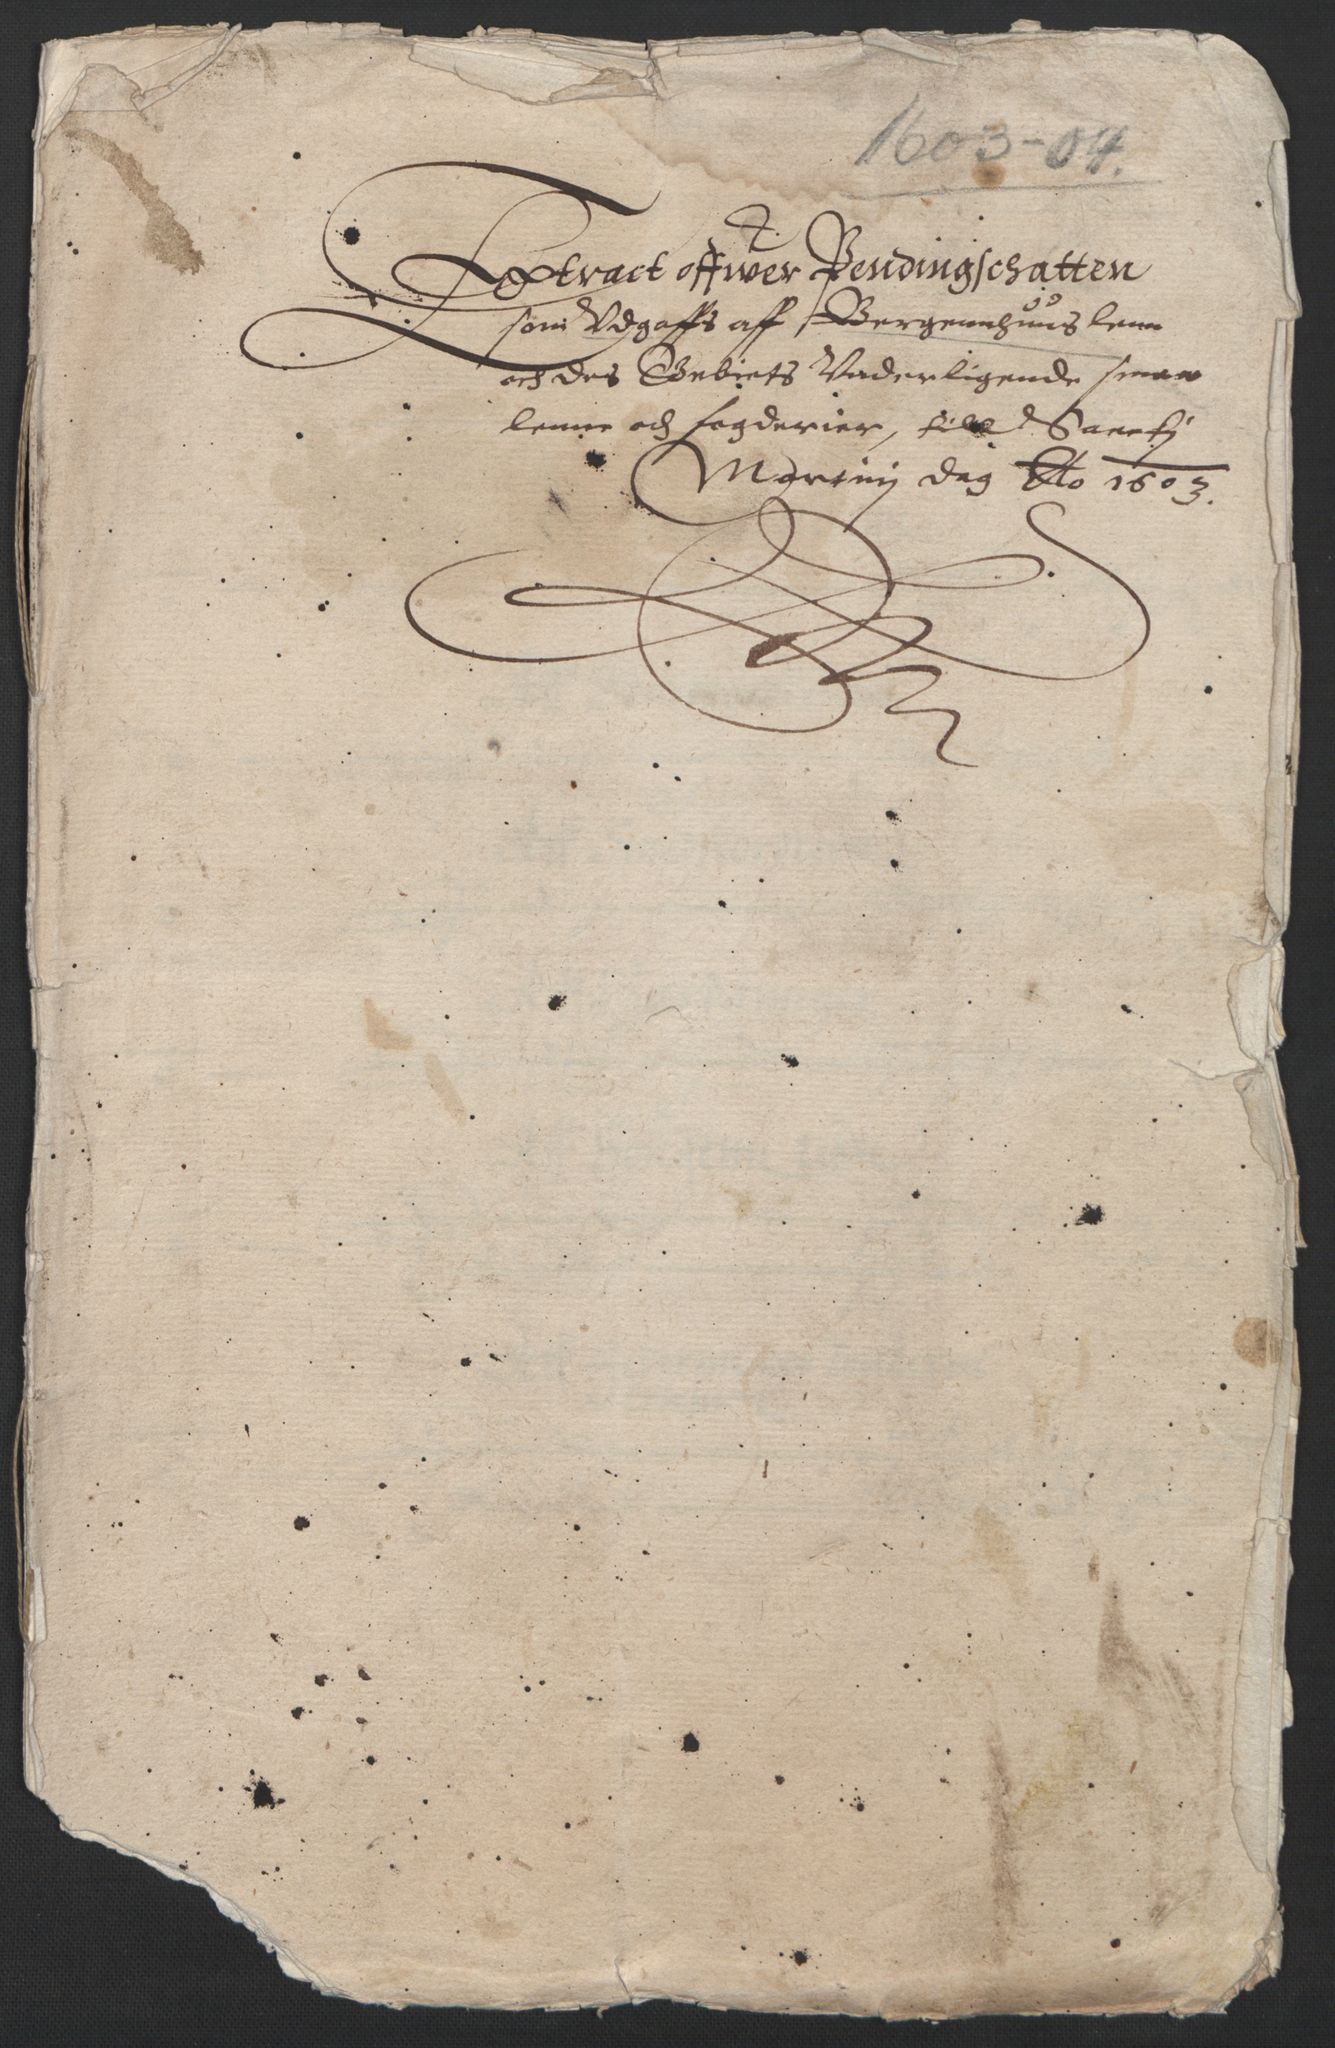 1603-04.
Extract offwer Pendingschatten
som Udgaffs aff Bergennhuus lenn
och des Gebiets Underligende smaa
lenne och fogderier, till Sancti
Martinij dag Ao 1603.